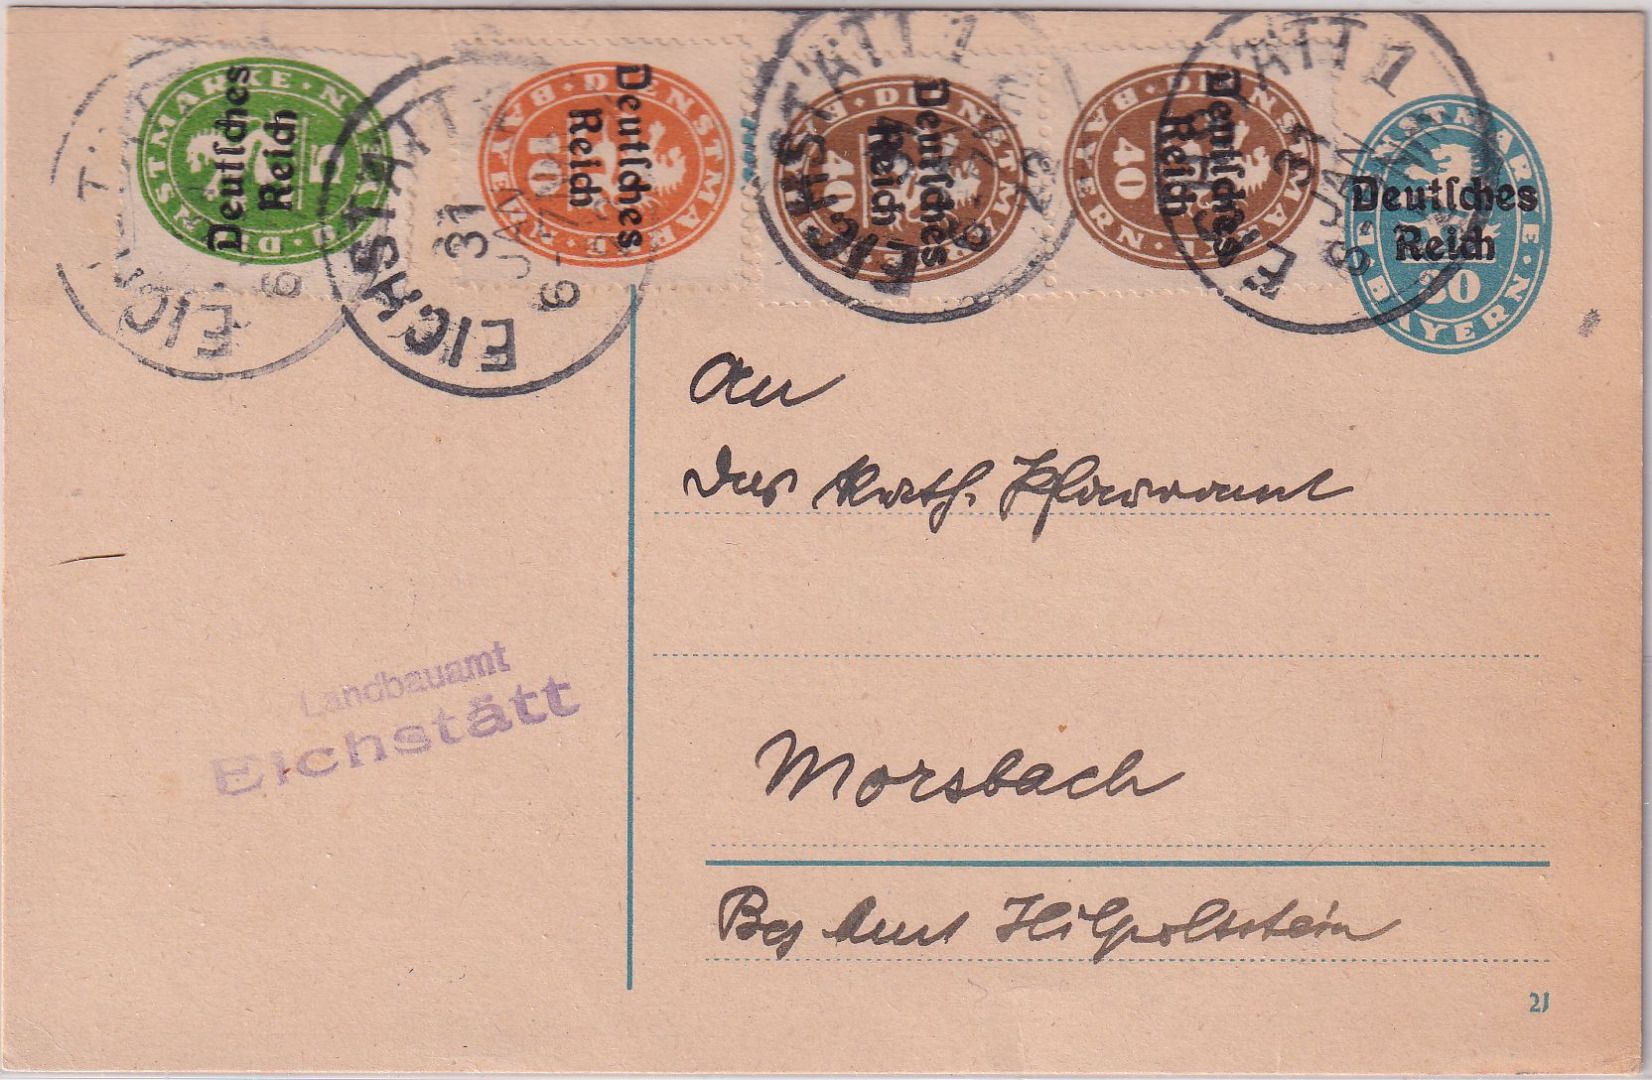 DIENSTMARKE · BAYERN
5
Deutsches
Reich
DIENSTMARKE · BAYERN
10
Deutsches
Reich
DIENSTMARKE · BAYERN
40
Deutsches
Reich
DIENSTMARKE · BAYERN
40
Deutsches
Reich
DIENSTMARKE · BAYERN
30
Deutsches
Reich
EICHSTÄTT
EICHSTÄTT
31
JAN
6-
EICHSTÄTT 1
EICHSTÄTT 1
31
JAN
An
das Kath. Pfarramt
Morsbach
Landbauamt
Eichstätt
Bez Amt Hilpoltstein
21